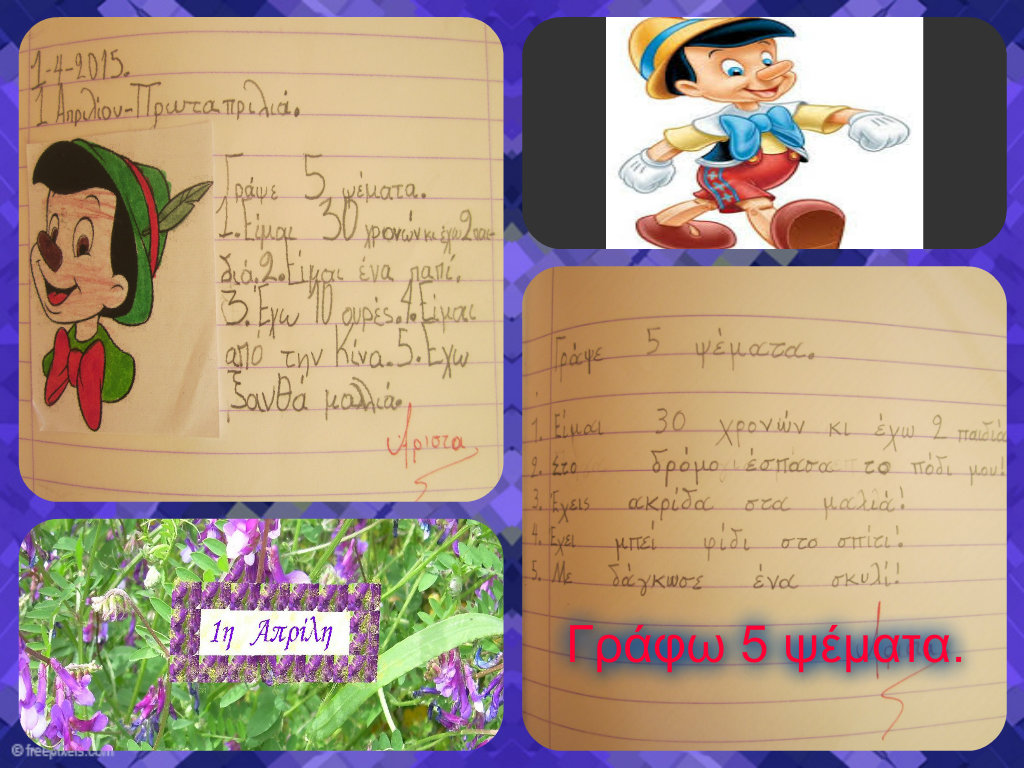 1-4-2015.
1 Απριλίου-Πρωταπριλιά.
Γράψε 5 ψέματα.
1.Είμαι 30 χρονών κι έχω 2 παι-
διά.2.Είμαι ένα παπί.
3.Έχω 10 ουρές.4.Είμαι
από την Κίνα.5.Έχω
ξανθά μαλλιά.
Άριστα
Γράψε 5 ψέματα.
1. Είμαι 30 χρονών κι έχω 2 παιδιά
2. Στο δρόμο έσπασα το πόδι μου!
3. Έχεις ακρίδα στα μαλιά!
4. Έχει μπεί φίδι στο σπίτι!
5. Με δάγκωσε ένα σκυλί!
Γράφω 5 ψέματα.
1η Απρίλη
© freepixels.com